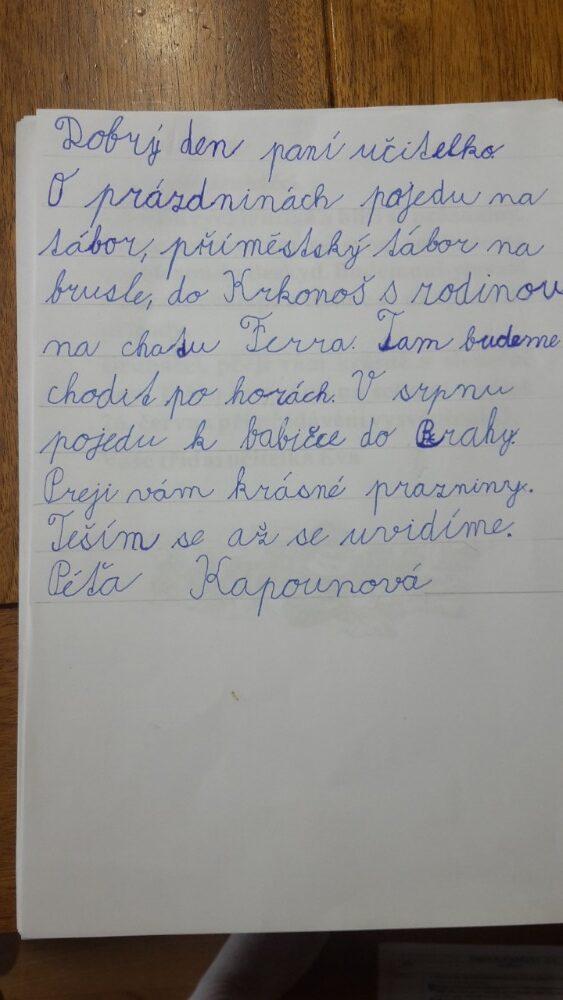 Dobrý den paní učitelko.
O prázdninách pojedu na
tábor, příměstský tábor na
brusle, do Krkonoš s rodinou
na chatu Ferra. Tam budeme
chodit po horách. V srpnu
pojedu k babičce do Prahy.
Preji vám krásné prazniny.
Teším se až se uvidíme.
Péťa Kapounová